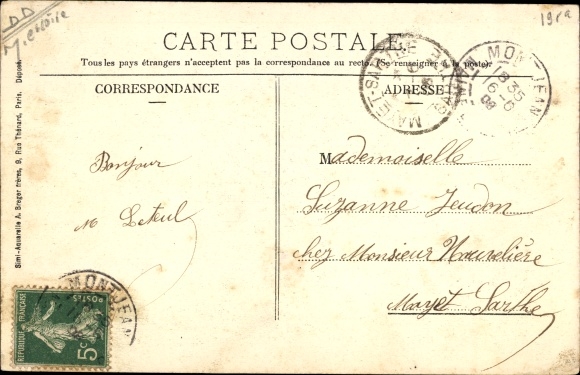 DD
191a
CARTE POSTALE
Tous les pays étrangers n'acceptent pas la correspondance au recto. (Se renseigner à la poste).
CORRESPONDANCE
ADRESSE
MAYET-SARTHE
MONTJEAN
18 35
6-6
08
Simi-Aquarelle A. Breger frères, 9, Rue Thénard, Paris. Déposé.
Bonjour
Mademoiselle
Suzanne Jeudon
chez Monsieur Nouvelière
Mayet Sarthe
MONTJEAN
REPUBLIQUE FRANÇAISE
POSTES
5c